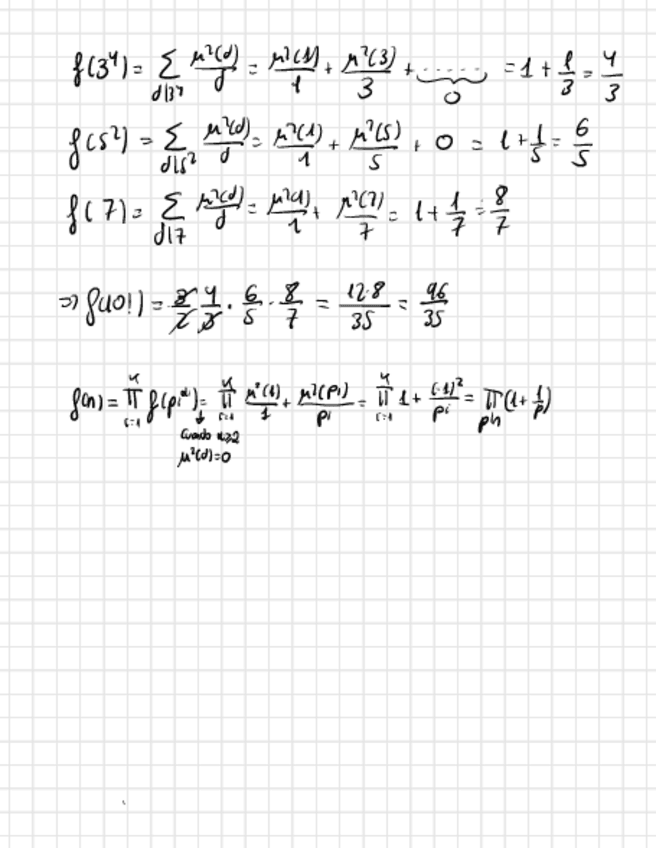 f(3⁴) = Σ_{d|3⁴} μ²(d)/d = μ²(1)/1 + μ²(3)/3 + ........ (0) = 1 + 1/3 = 4/3
f(5²) = Σ_{d|5²} μ²(d)/d = μ²(1)/1 + μ²(5)/5 + 0 = 1 + 1/5 = 6/5
f(7) = Σ_{d|7} μ²(d)/d = μ²(1)/1 + μ²(7)/7 = 1 + 1/7 = 8/7
⇒ f(10!) = 3/2 · 4/3 · 6/5 · 8/7 = 12·8/35 = 96/35
f(n) = ∏_{i=1}^{k} f(pᵢ^α) = ∏_{i=1}^{k} μ²(1)/1 + μ²(pᵢ)/pᵢ = ∏_{i=1}^{k} 1 + (-1)²/pᵢ = ∏_{p|n} (1 + 1/p)
↓
Cuando α≥2
μ²(d)=0